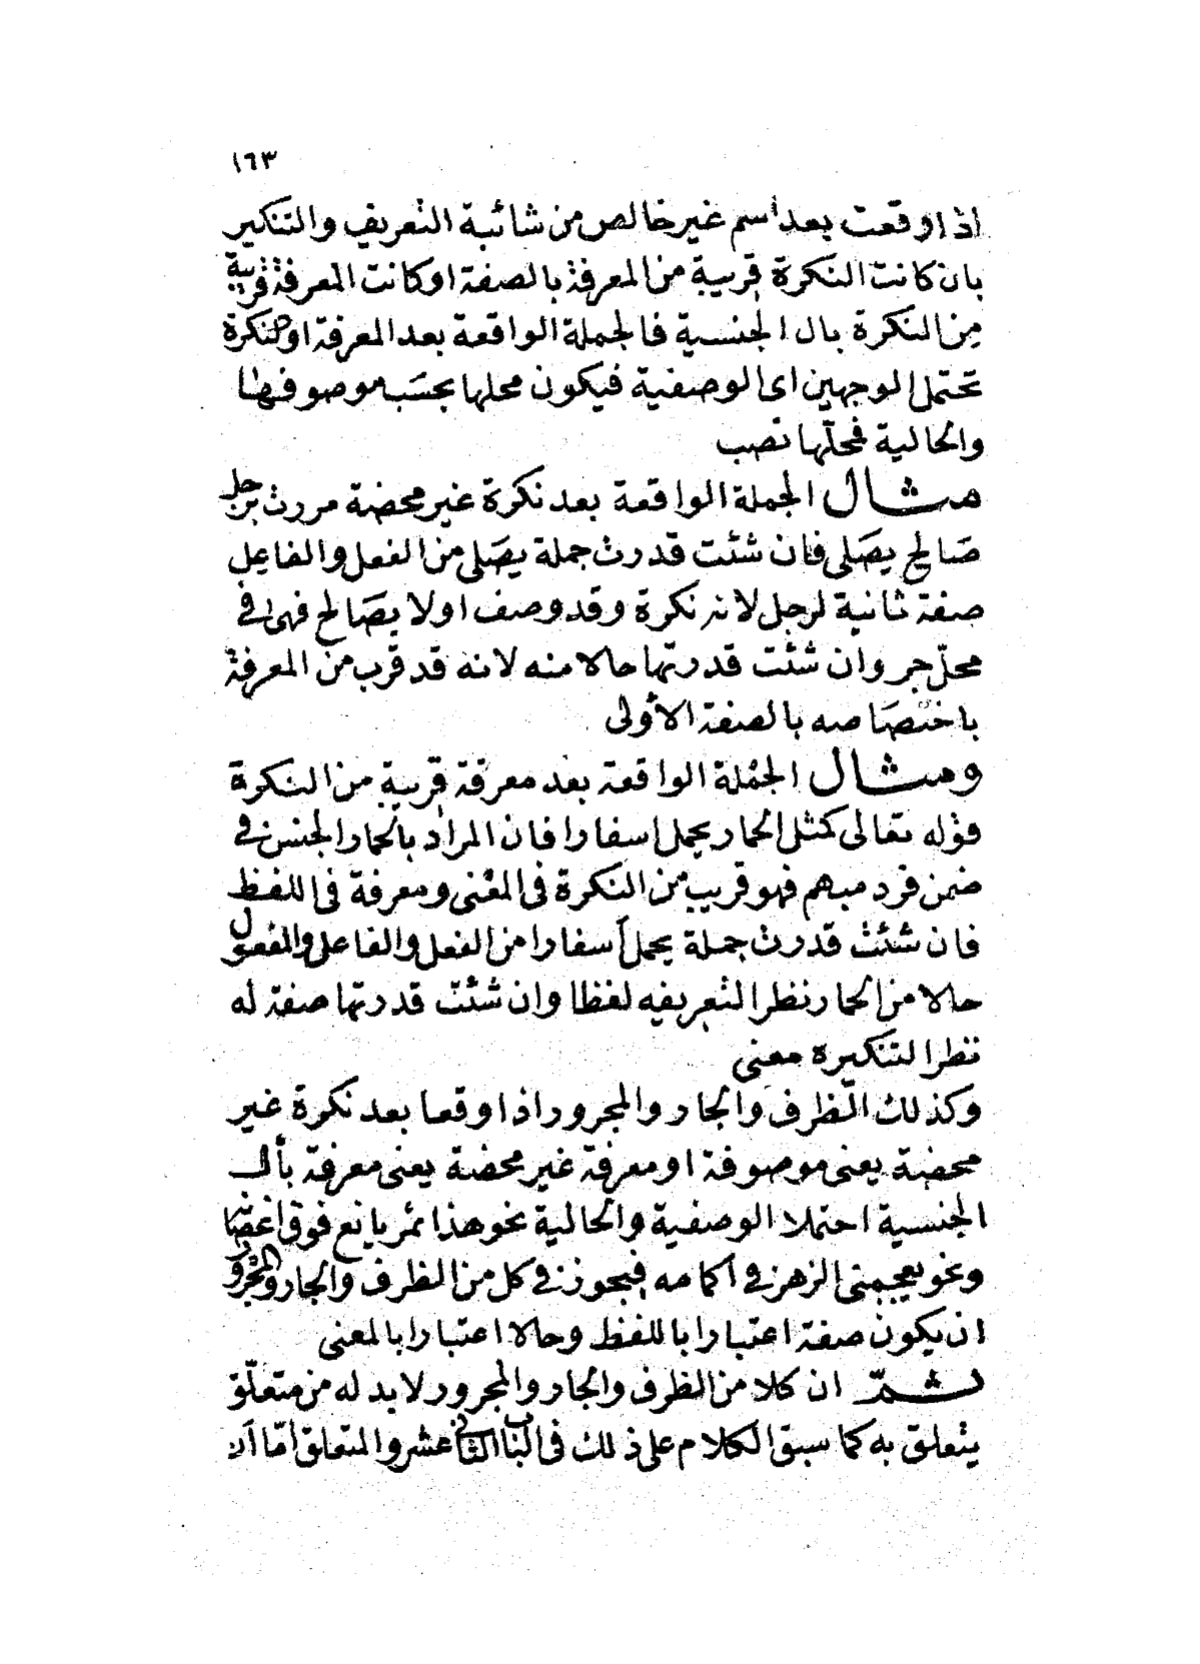 ١٦٣
اذا وقعت بعد اسم غير خالص من شائبة التعريف والتنكير
بان كانت النكرة قريبة من المعرفة بالصفة او كانت المعرفة قريبة
من النكرة بال الجنسية فالجملة الواقعة بعد المعرفة او النكرة
تحتمل الوجهين اى الوصفية فيكون محلها بحسب موصوفها
والحالية فمحلّها نصب
مثال الجملة الواقعة بعد نكرة غير محضة مررت برجل
صالح يصَلى فان شئت قدرت جملة يصَلى من الفعل والفاعل
صفة ثانية لرجل لانه نكرة وقد وصف اولا بصَالح فهى فى
محلّ جر وان شئت قدرتها حالا منه لانه قد قرب من المعرفة
باختصَاصه بالصفة الأولى
ومثال الجملة الواقعة بعد معرفة قريبة من النكرة
قوله تعالى كمثل الحمار يحمل اسفارا فان المراد بالحمار الجنس فى
ضمن فرد مبهم فهو قريب من النكرة فى المعنى ومعرفة فى اللفظ
فان شئت قدرت جملة يحمل أسفارا من الفعل والفاعل والمفعول
حالا من الحمار نظرا لتعريفه لفظا وان شئت قدرتها صفة له
نظرا لتنكيره معنى
وكذلك الظرف والجار والمجرور اذا وقعا بعد نكرة غير
محضة يعنى موصوفة او معرفة غير محضة يعنى معرفة بأل
الجنسية احتملا الوصفية والحالية نحو هذا ثمر يانع فوق اغصَانه
ونحو يعجبنى الزهر فى أكمامه فيجوز فى كل من الظرف والجار والمجرور
ان يكون صفة اعتبارا باللفظ وحالا اعتبارا بالمعنى
ثمّ ان كلا من الظرف والجار والمجرور لا بد له من متعلّق
يتعلق به كما سبق الكلام على ذلك فى الباب الثانى عشر والمتعلق أمّا أن